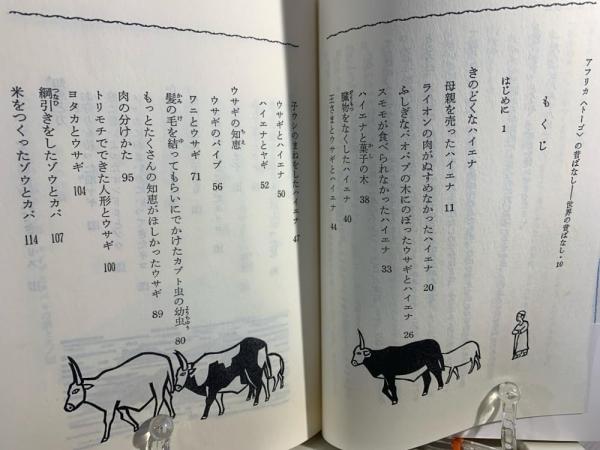 アフリカ〈トーゴ〉の昔ばなし――世界の昔ばなし・10
もくじ
はじめに 1
きのどくなハイエナ
母親を売ったハイエナ 11
ライオンの肉がぬすめなかったハイエナ 20
ふしぎなバオバブの木にのぼったウサギとハイエナ 26
スモモが食べられなかったハイエナ 33
ハイエナと菓子の木 38
臓物をなくしたハイエナ 40
王さまとウサギとハイエナ 44
子ウシのまねをしたハイエナ 47
ウサギとハイエナ 50
ハイエナとヤギ 52
ウサギの知恵
ウサギのパイプ 56
ワニとウサギ 71
髪の毛を結ってもらいにでかけたカブト虫の幼虫 80
もっとたくさんの知恵がほしかったウサギ 89
肉の分けかた 95
トリモチでできた人形とウサギ 100
ヨタカとウサギ 104
綱引きをしたゾウとカバ 107
米をつくったゾウとカバ 114